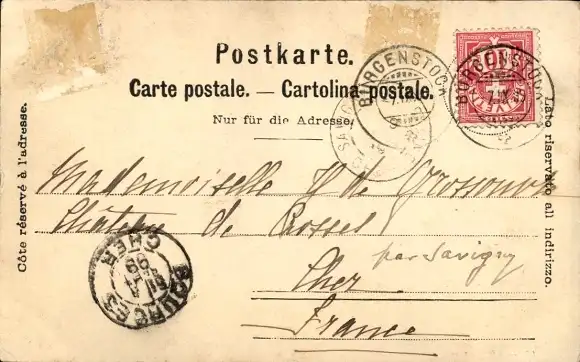 Postkarte.
Carte postale. — Cartolina postale.
Nur für die Adresse.
Côte réservé à l'adresse.
Lato riservato all indirizzo.
BÜRGENSTOCK
BÜRGENSTOCK
Mademoiselle Y de Grossouvre
Château de Crosses
par Savigny
Cher
France
BOURGES
CHER
99